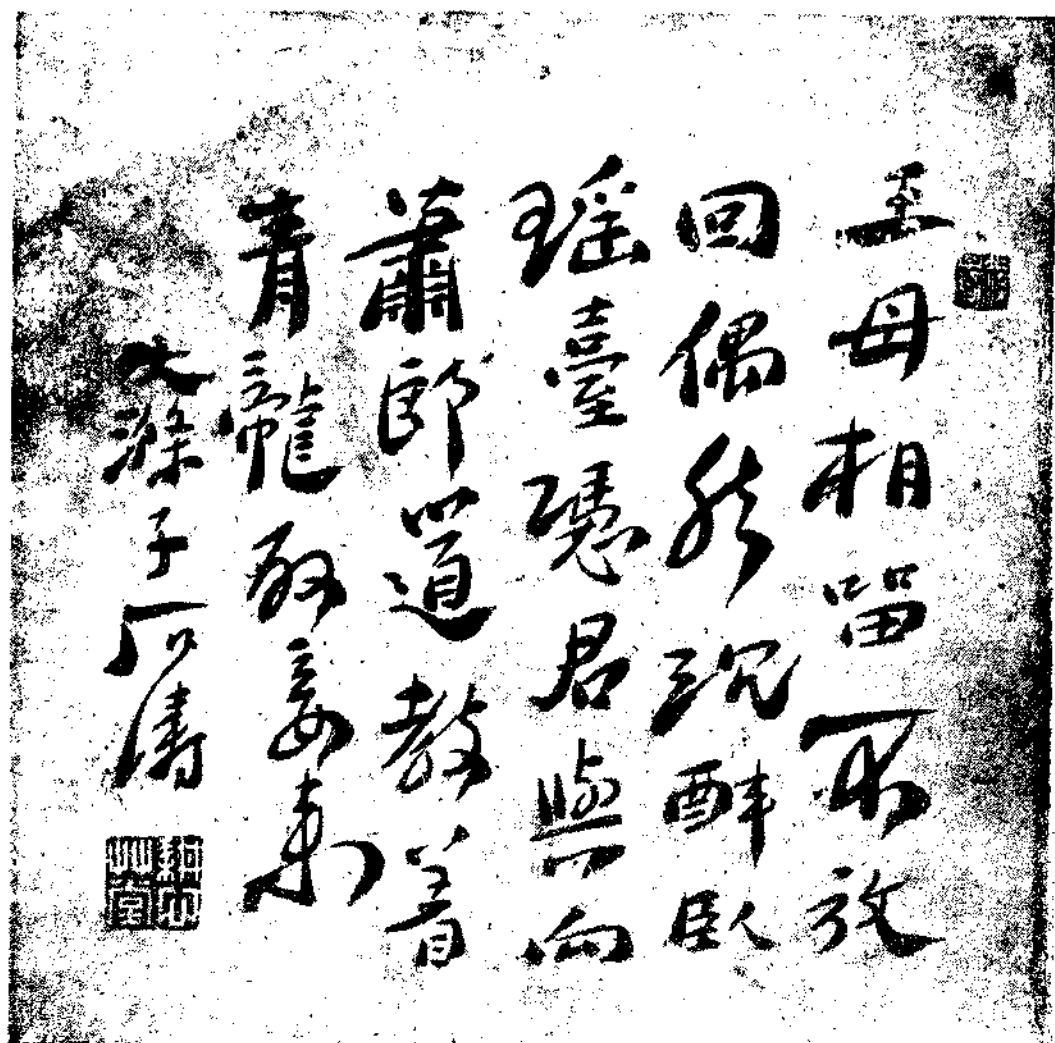 王母相留不放
回偶然沉醉臥
瑤臺憑君與向
蕭郎道教着
青龍取妾來
大滌子石濤